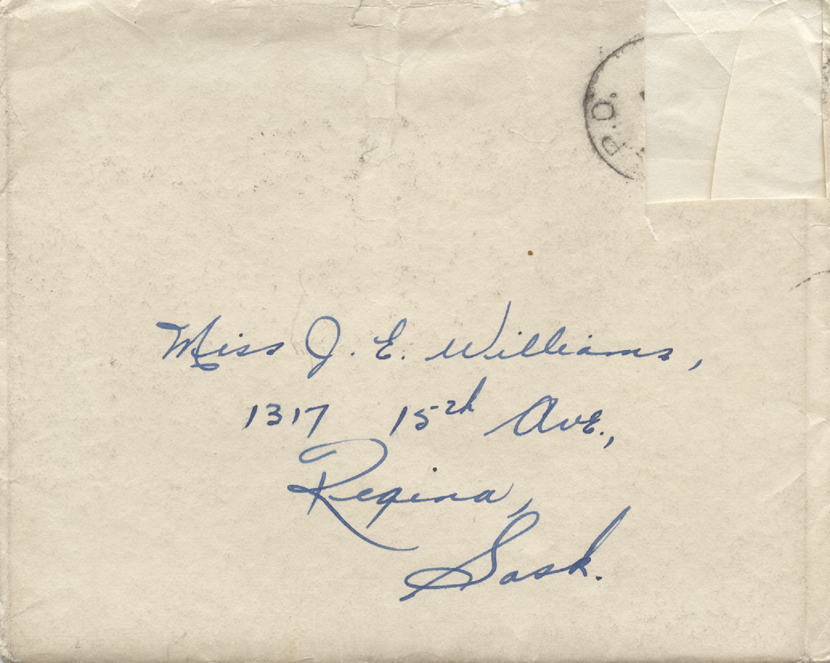 P.O.
Miss J. E. Williams,
1317 15th Ave.,
Regina,
Sask.